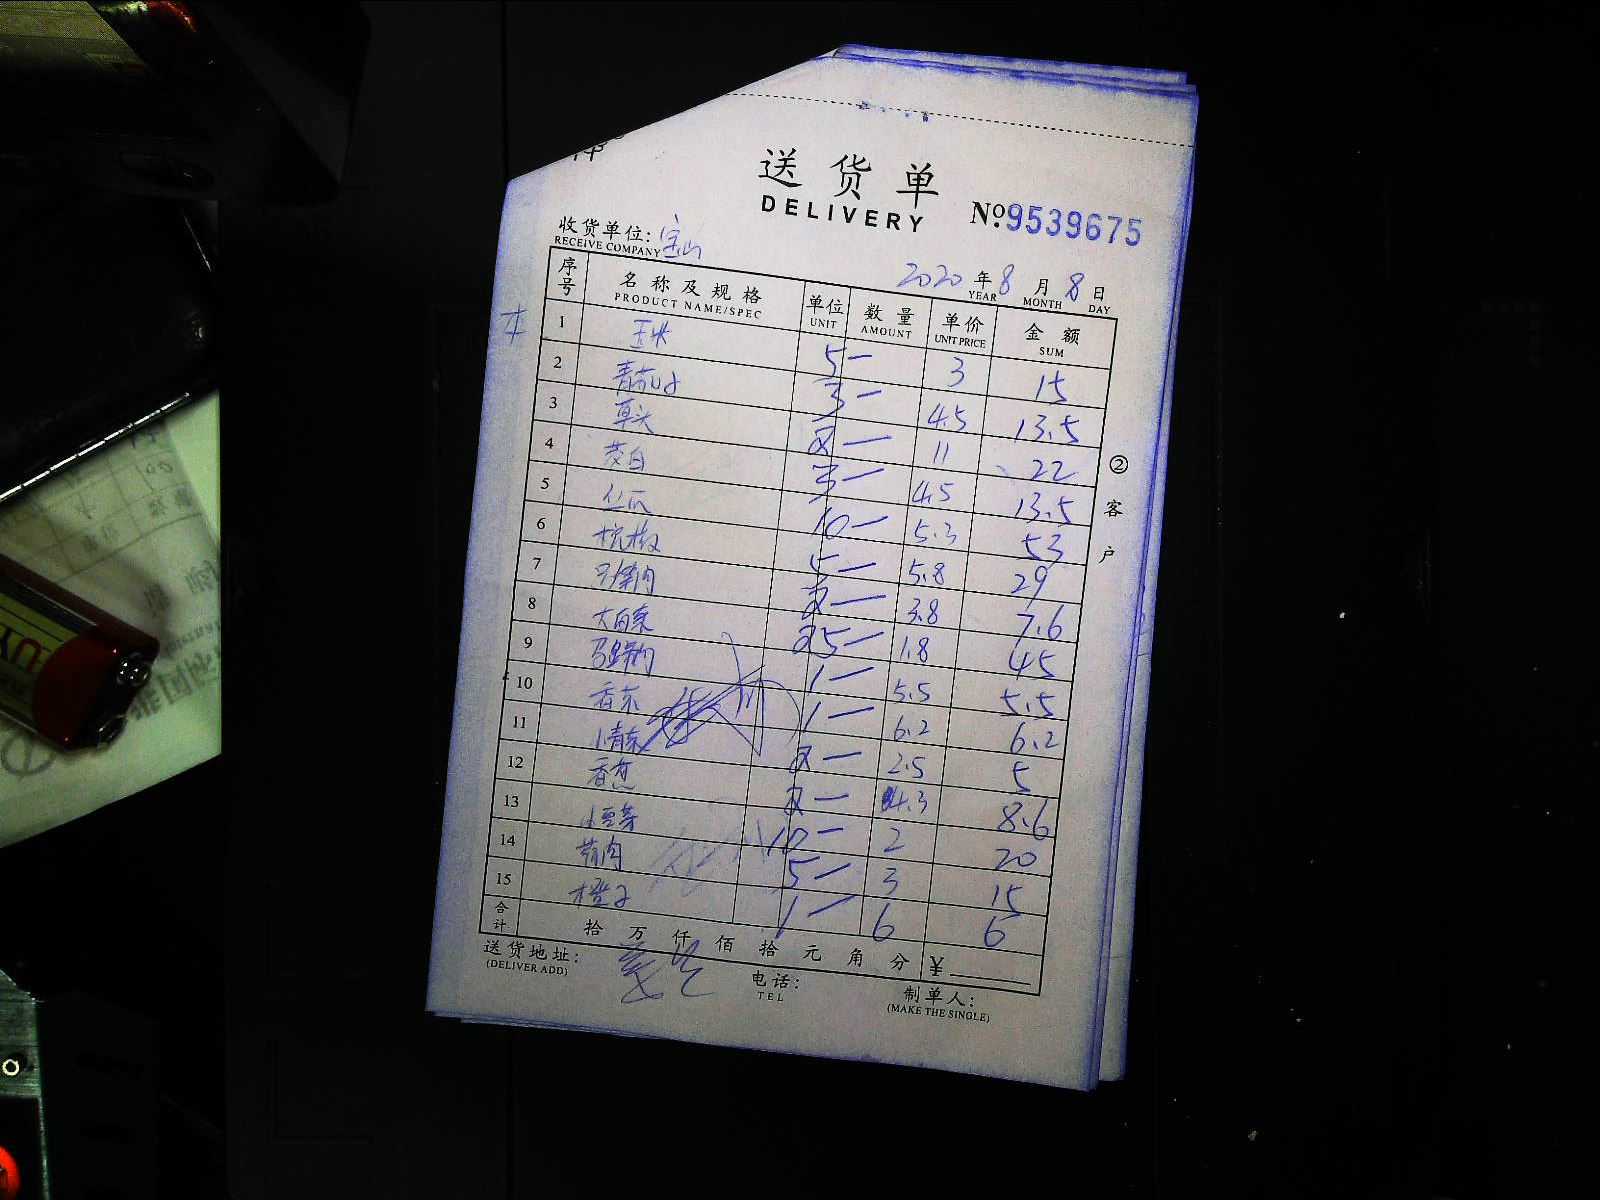 送货单
DELIVERY
No.9539675
收货单位: 宝山
RECEIVE COMPANY
2020 年 8 月 8 日
YEAR MONTH DAY
序号 名称及规格 单位 数量 单价 金额
PRODUCT NAME/SPEC UNIT AMOUNT UNIT PRICE SUM
1 玉米 5- 3 15
2 青茄子 3- 4.5 13.5
3 草头 2- 11 22
4 茭白 3- 4.5 13.5
5 丝瓜 10- 5.3 53
6 杭椒 5- 5.8 29
7 2- 3.8 7.6
8 大白菜 25- 1.8 45
9 1- 5.5 5.5
10 香菜 1- 6.2 6.2
11 小青菜 2- 2.5 5
12 香葱 2- 4.3 8.6
13 10- 2 20
14 5- 3 15
15 橙子 1- 6 6
合计 拾 万 仟 佰 拾 元 角 分 ¥
送货地址: 电话: 制单人:
(DELIVER ADD) TEL (MAKE THE SINGLE)
②客户